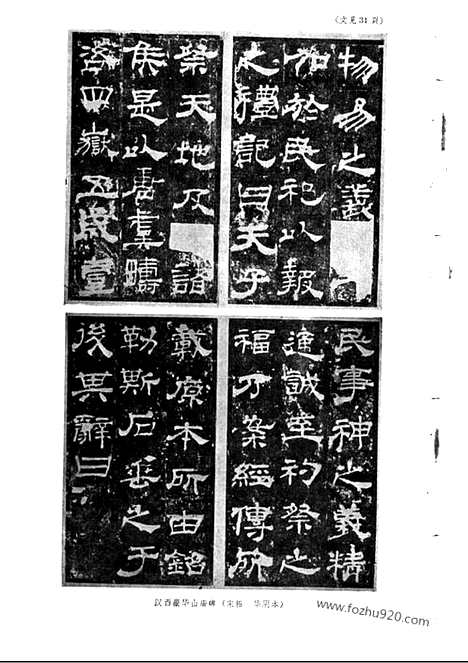 (文见31页)
物易之義
加於民祀以報
之禮記曰天子
祭天地及 諸
侯是以唐虞疇
咨四嶽五歲壹
民事神之義精
通誠至礿祭之
福乃案經傳所
載原本所由銘
勒斯石垂之于
後其辭曰
汉西嶽华山庙碑(宋拓 华阴本)
www.fozhu920.com